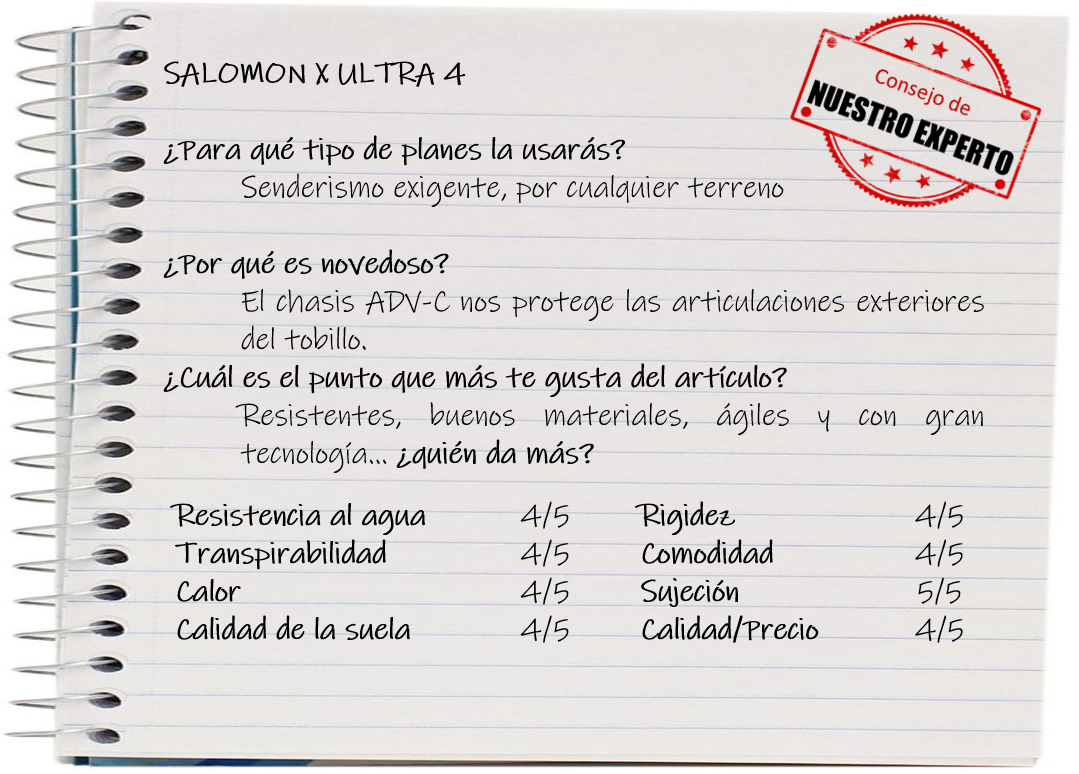 SALOMON X ULTRA 4
Consejo de
NUESTRO EXPERTO
¿Para qué tipo de planes la usarás?
Senderismo exigente, por cualquier terreno
¿Por qué es novedoso?
El chasis ADV-C nos protege las articulaciones exteriores
del tobillo.
¿Cuál es el punto que más te gusta del artículo?
Resistentes, buenos materiales, ágiles y con gran
tecnología... ¿quién da más?
Resistencia al agua 4/5 Rigidez 4/5
Transpirabilidad 4/5 Comodidad 4/5
Calor 4/5 Sujeción 5/5
Calidad de la suela 4/5 Calidad/Precio 4/5